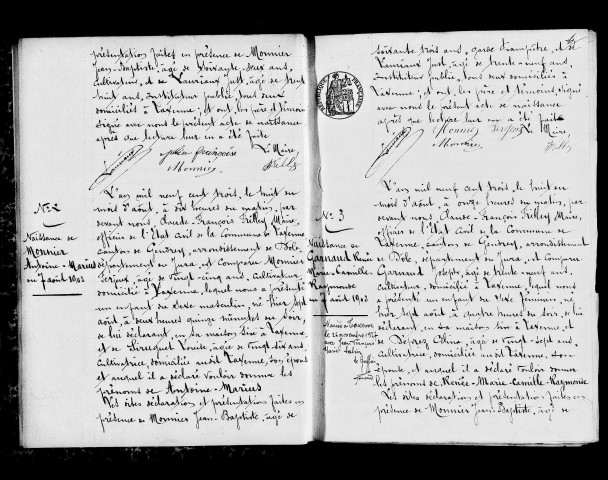 présentation faites en présence de Monnier
Jean-Baptiste, âgé de soixante-deux ans,
cultivateur, et de Vauriaux Just, âgé de trente
huit ans, Instituteur public, tous deux
domiciliés à Taxenne; et ont, les père et témoins
signé avec nous le présent acte de naissance
après que lecture leur en a été faite
Le Maire,
Monnier
N° 2
Naissance de
Monnier
Antoine-Marius
du 7 août 1903
L'an mil neuf cent trois, le huit du
mois d'août, à dix heures du matin, par
devant nous, Claude-François Frilley, Maire,
officier de l'Etat Civil de la Commune de Taxenne
canton de Gendrey, arrondissement de Dole,
département du Jura, est comparu Monnier
âgé de vingt-cinq ans, cultivateur,
domicilié à Taxenne, lequel nous a présenté
un enfant du sexe masculin, né hier sept
août, à deux heures quinze minutes du soir,
de lui déclarant, en sa maison sise à Taxenne,
et de Louise, âgée de vingt-six ans,
cultivatrice, domiciliée audit Taxenne, son épouse
et auquel il a déclaré vouloir donner les
prénoms de Antoine-Marius
Les dites déclaration et présentation faites en
présence de Monnier Jean-Baptiste, âgé de
soixante trois ans, garde champêtre, et de
Vauriaux Just, âgé de trente-neuf ans,
Instituteur public, tous deux domiciliés à
Taxenne; et ont, les père et témoins, signé
avec nous le présent acte de naissance
après que lecture leur en a été faite
Le Maire,
Monnier
N° 3
Naissance de
Garnaud Renée
Marie-Camille-
Raymonde
du 7 août 1903
Mariée à Taxenne
L'an mil neuf cent trois, le huit du
mois d'août, à onze heures du matin, par
devant nous, Claude-François Frilley, Maire,
officier de l'Etat Civil de la Commune de
Taxenne, canton de Gendrey, arrondissement
de Dole, département du Jura, est comparu
Garnaud Joseph, âgé de trente-neuf ans,
cultivateur, domicilié à Taxenne, lequel nous
a présenté un enfant du sexe féminin, né
hier sept août, à quatre heures du soir, de lui
déclarant, en sa maison sise à Taxenne, et
de âgée de vingt-sept ans,
cultivatrice, domiciliée audit Taxenne, son
épouse, et auquel il a déclaré vouloir donner
les prénoms de Renée-Marie-Camille-Raymonde
Les dites déclaration et présentation faites en
présence de Monnier Jean-Baptiste, âgé de